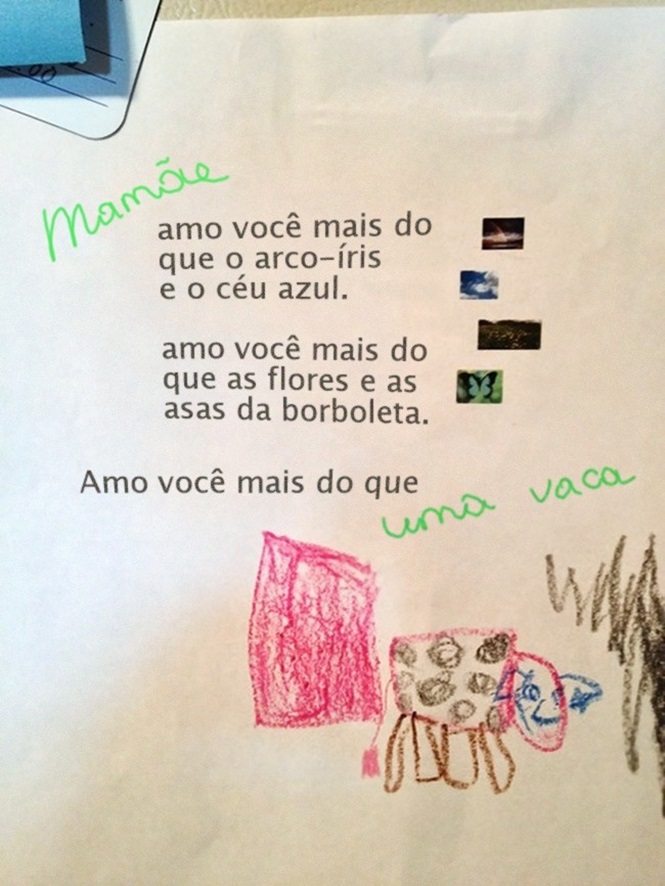 Mamãe
amo você mais do
que o arco-íris
e o céu azul.
amo você mais do
que as flores e as
asas da borboleta.
Amo você mais do que
uma vaca